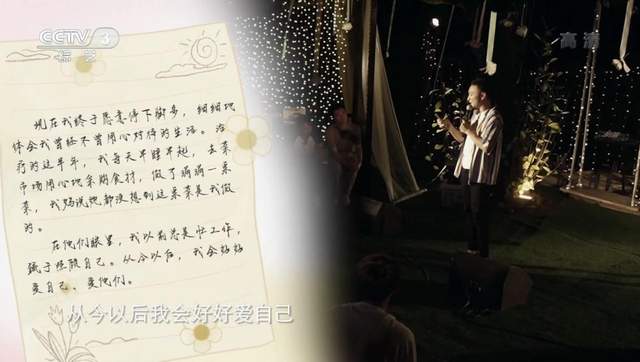 CCTV 3
综艺
高清
现在我终于愿意停下脚步，细细地
体会我曾经不曾用心对待的生活。治
疗的这半年，我每天早睡早起，去菜
市场用心地采购食材，做了满满一桌
菜，我妈说她都没想到这桌菜是我做
的。
在他们眼里，我以前总是忙工作，
疏于照顾自己。从今以后，我会好好
爱自己、爱他们。
从今以后我会好好爱自己